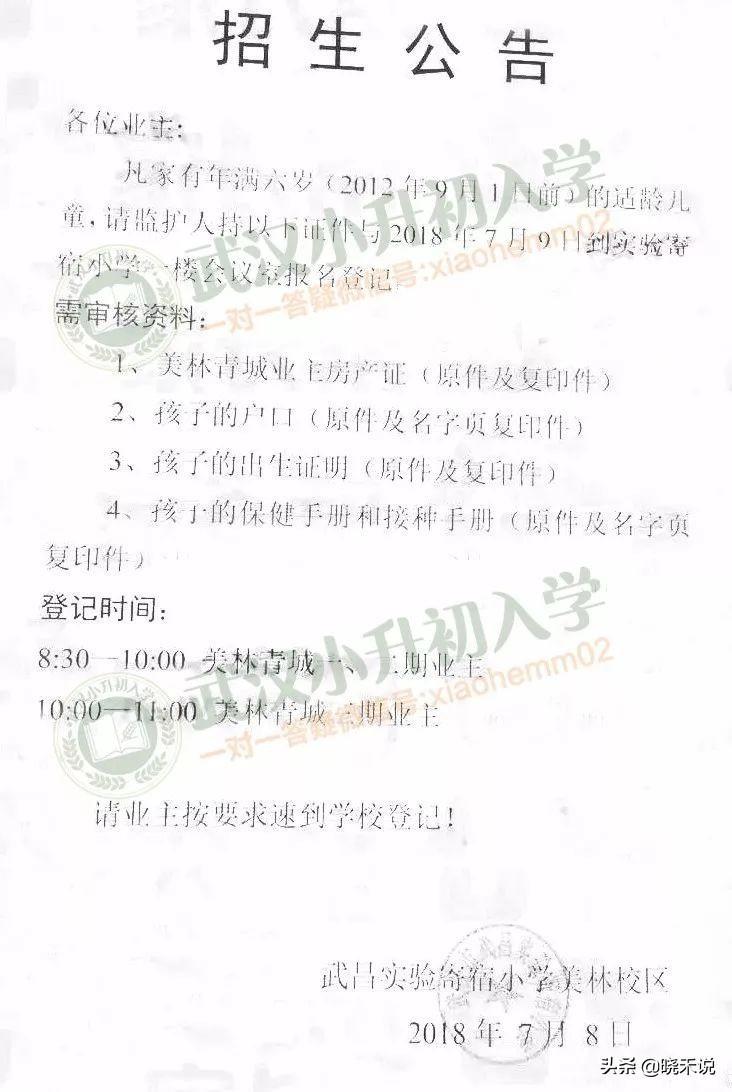 招生公告
各位业主:
凡家有年满六岁(2012年9月1日前)的适龄儿
童,请监护人持以下证件与2018年7月9日到实验寄
宿小学一楼会议室报名登记
需审核资料:
1、美林青城业主房产证(原件及复印件)
2、孩子的户口(原件及名字页复印件)
3、孩子的出生证明(原件及复印件)
4、孩子的保健手册和接种手册(原件及名字页
复印件)
登记时间:
8:30—10:00 美林青城一、二期业主
10:00—11:00 美林青城三期业主
请业主按要求速到学校登记!
武昌实验寄宿小学美林校区
2018年7月8日
武汉小升初入学
一对一答疑微信号:xiaohemm02
武汉小升初入学
一对一答疑微信号:xiaohemm02
头条@晓禾说